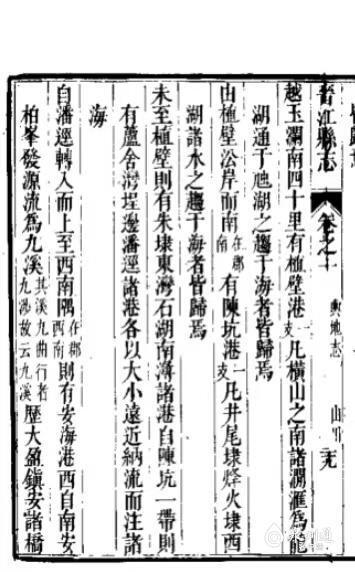 晉江縣志 卷之十 輿地志 山川 九
越玉瀾南四十里有植壁港一支凡橫山之南諸澗滙爲龍
湖通于𣲘湖之趨于海者皆歸焉
由植壁㳂岸而南在郡南有陳坑港一支凡井尾埭烽火埭西
湖諸水之趨于海者皆歸焉
未至植壁則有朱埭東灣石湖南潯諸港自陳坑一帶則
有蘆舍灣埕邊潘逕諸港各以大小遠近納流而注諸
海
自潘逕轉入而上至西南隅在郡西南則有安海港西自南安
柏峯發源流爲九溪其溪九曲行者九涉故云九溪歷大盈鎭安諸橋